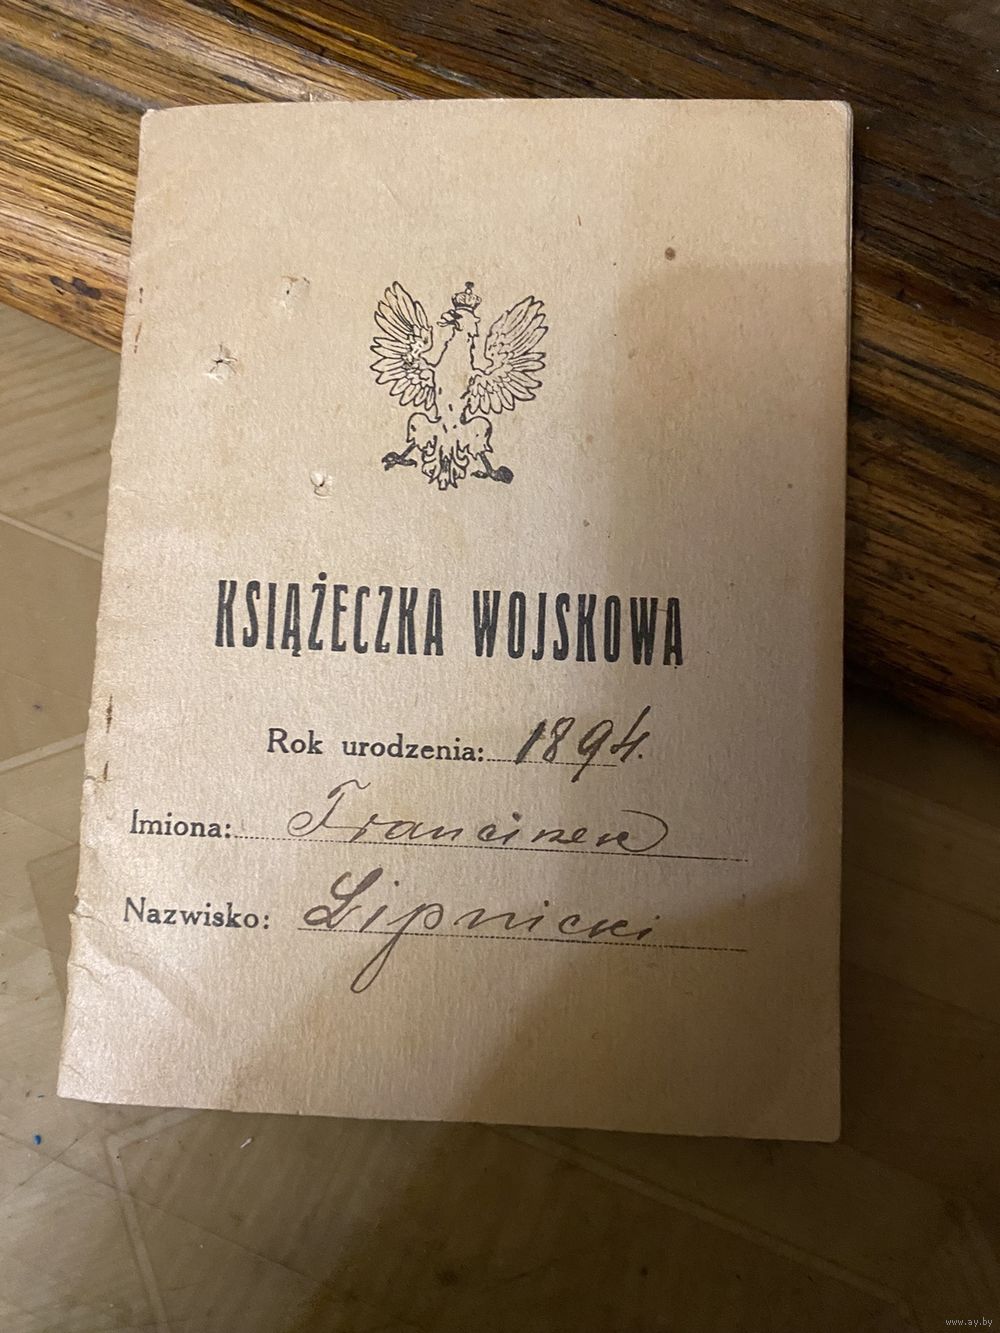 KSIĄŻECZKA WOJSKOWA
Rok urodzenia: 1894.
Imiona: Franciszek
Nazwisko: Lipnicki
www.ay.by